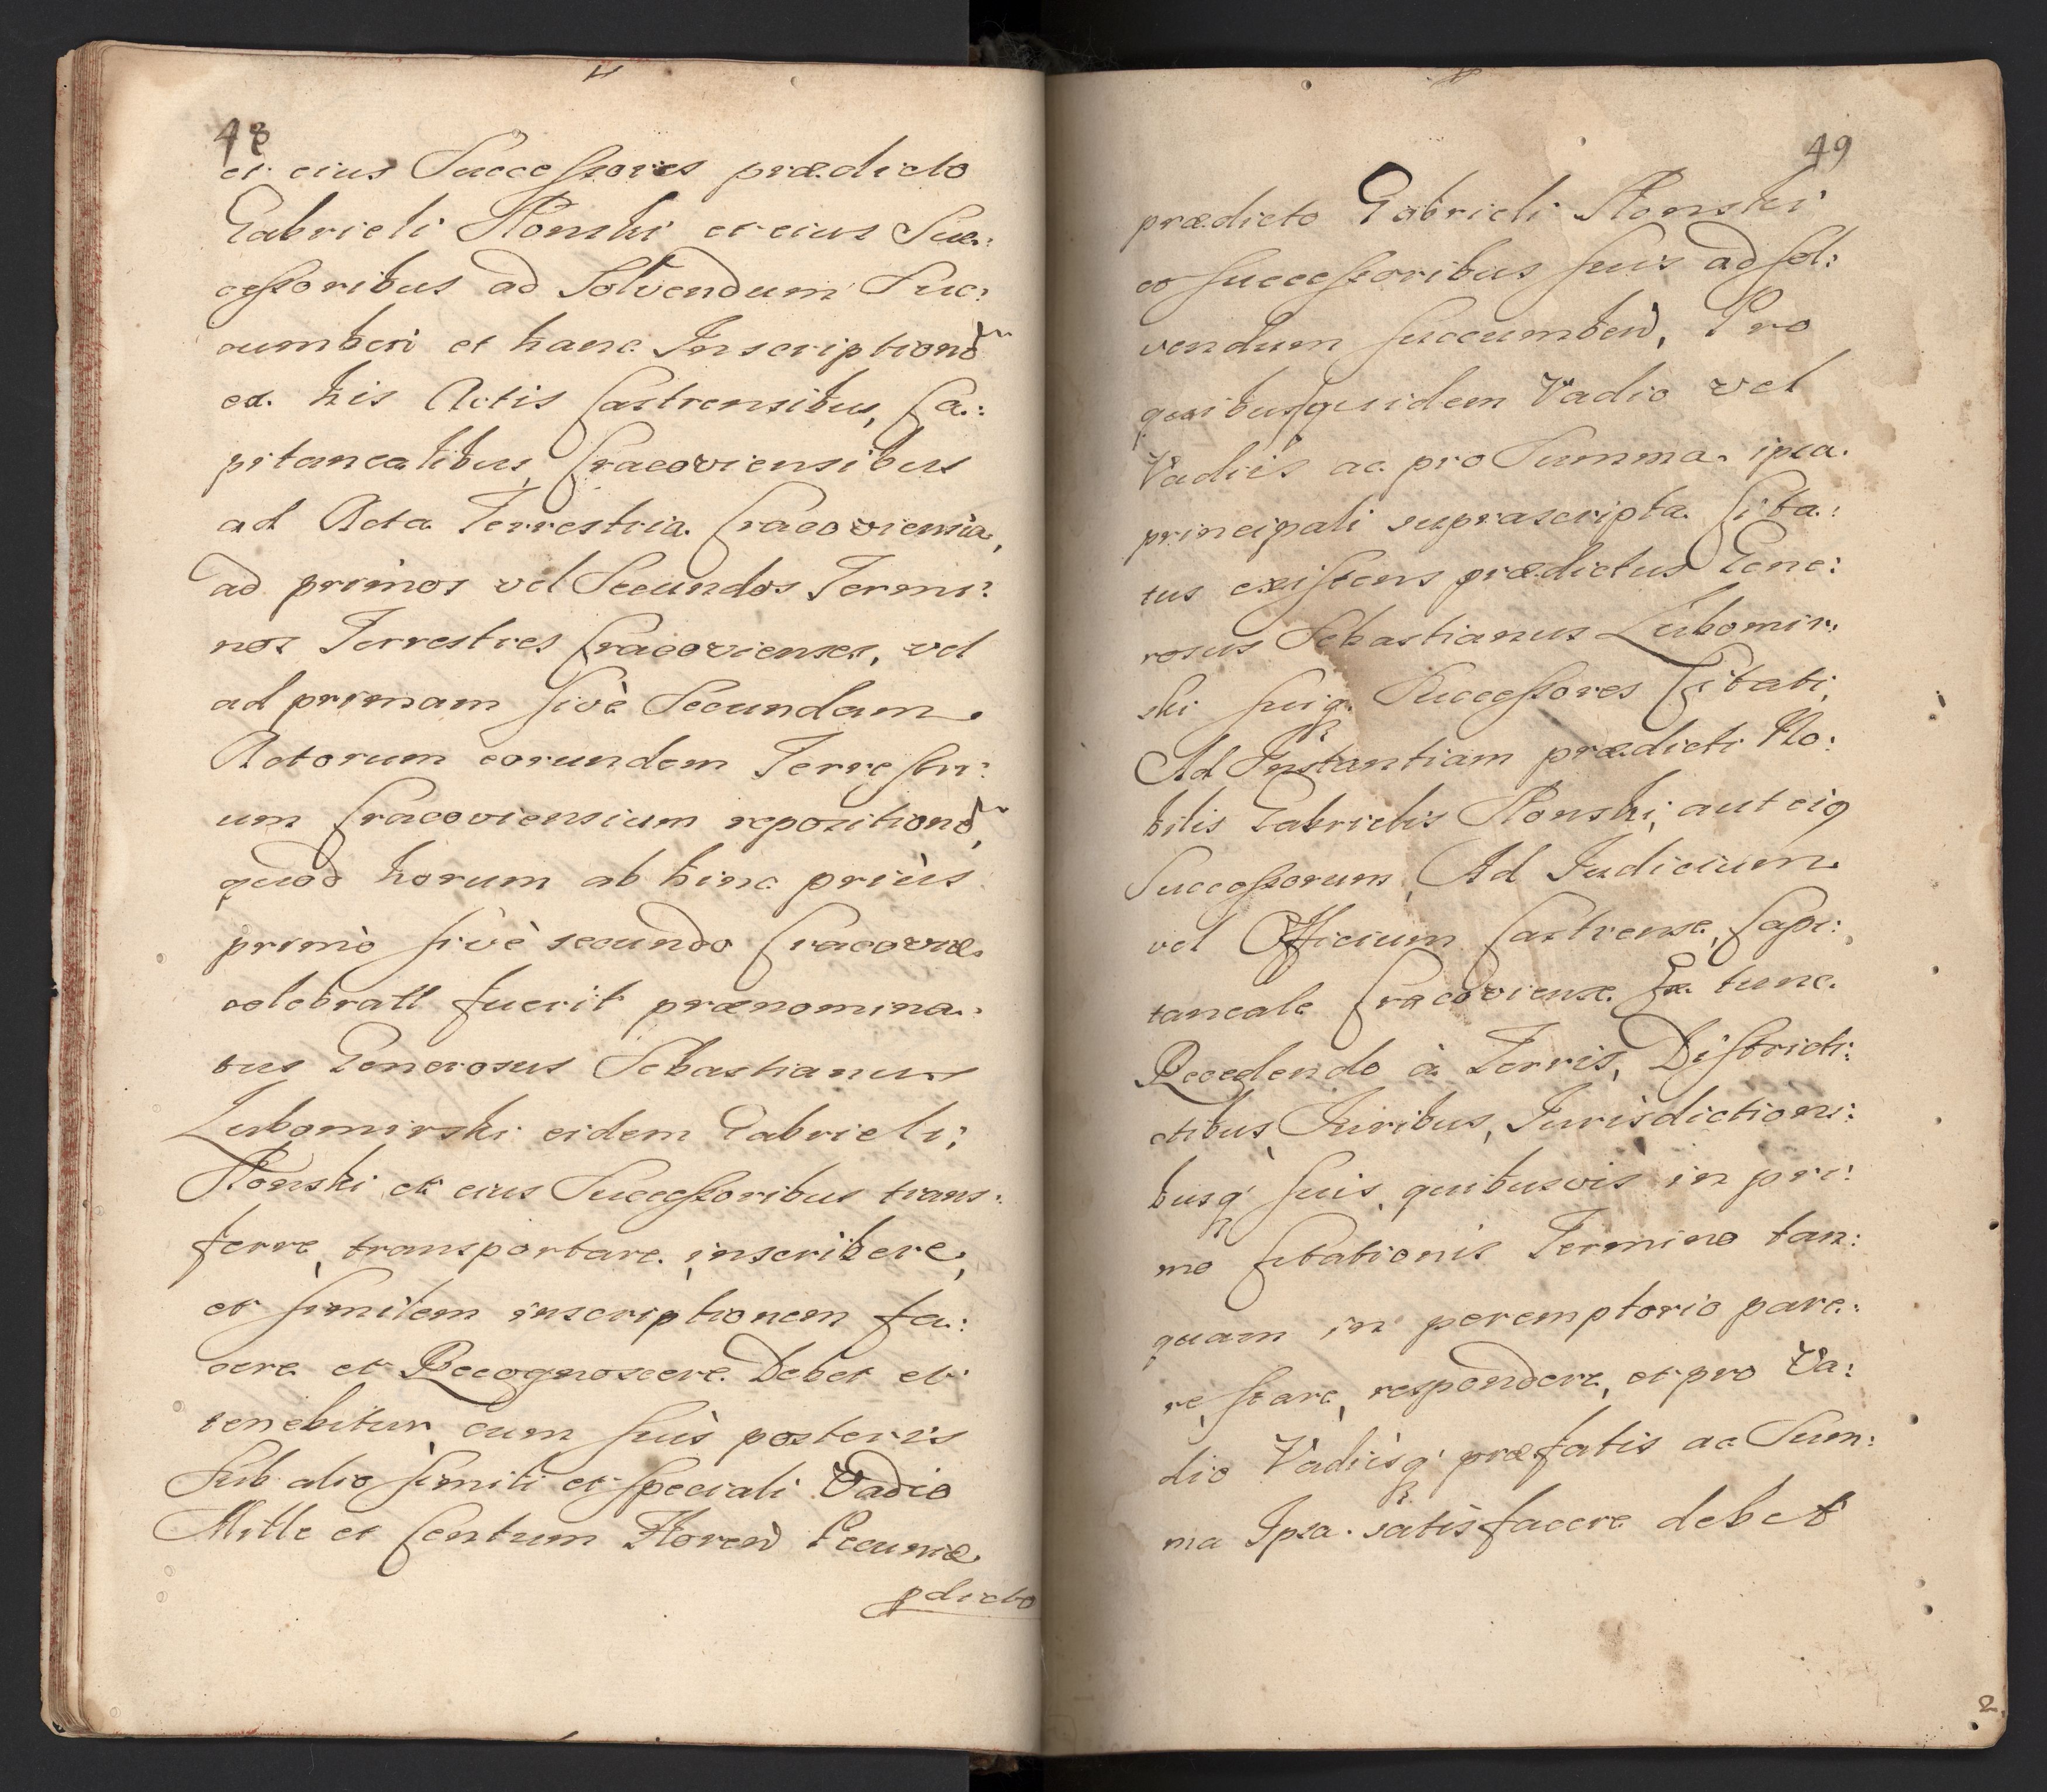 48
et eius Successores prædicto
Gabrieli Słonski et eius Suc:
cessoribus ad Solvendum Suc:
cumberi et hanc Inscriptionẽ
ex his Actis Castrensibus, Ca:
pitanealibus Cracoviensibus
ad Acta Terrestria Cracoviensia,
ad primos vel Secundos Termi:
nos Terrestres Cracovienses, vel
ad primam sivè Secundam
Actorum eorundem Terrestri:
um Cracoviensium repositionẽ,
quod horum ab hinc priùs
primò sivè secundo Cracoviæ
celebratt fuerit prænomina:
tus Generosus Sebastianus
Lubomirski eidem Gabrieli,
Słonski et eius Successoribus trans:
ferre, transportare, inscribere,
et similem inscriptionem fa:
cere et Recognoscere Debet et
tenebitur, cum suis posteris
Sub alio simili et speciali Vadio
Mille et Centum Floren̄ Pecuniæ
pdicto
49
prædicto Gabrieli Słonski
et successoribus suis ad sol:
vendum succumben̄, Pro
quibusquidem Vadio vel
Vadiis ac pro Summa ipsa
principali suprascripta Cita:
tus existens prædictus Gene:
rosus Sebastianus Lubomir:
ski suiq Successores Citati,
Ad Instantiam prædicti No:
bilis Gabrielis Słonski, aut eiq
Successorum, Ad Judicium
vel Officium Castrense, Capi:
taneale Cracoviense Ex tunc
Recedendo à Terris, Districti:
ctibus, Juribus, Jurisdictioni:
busq' suis quibusvis in pri:
mo Citationis Termino tan:
quam in peremptorio pare:
re, stare, respondere, et pro Va:
dio Vadiisq' præfatis ac Sum:
ma Ipsa satisfacere debet
2